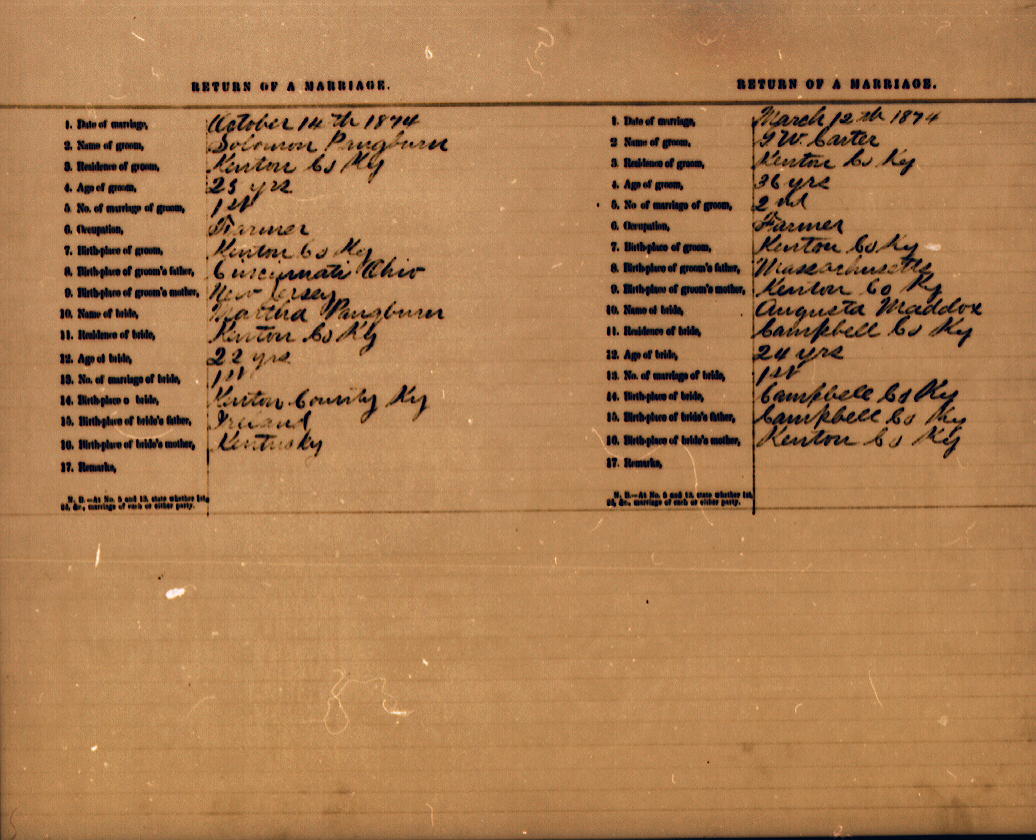 RETURN OF A MARRIAGE.
1. Date of marriage, October 14th 1874
2. Name of groom, Solomon Pangburn
3. Residence of groom, Kenton Co Ky
4. Age of groom, 25 yrs
5. No. of marriage of groom, 1st
6. Occupation, Farmer
7. Birth-place of groom, Kenton Co Ky
8. Birth-place of groom's father, Cincinnati Ohio
9. Birth-place of groom's mother, New Jersey
10. Name of bride, Martha Pangburn
11. Residence of bride, Kenton Co Ky
12. Age of bride, 22 yrs
13. No. of marriage of bride, 1st
14. Birth-place o bride, Kenton County Ky
15. Birth-place of bride's father, Ireland
16. Birth-place of bride's mother, Kentucky
17. Remarks,
N. B.—At No. 5 and 13, state whether 1st,
2d, &c., marriage of each or either party.
RETURN OF A MARRIAGE.
1. Date of marriage, March 12th 1874
2 Name of groom, G W. Carter
3. Residence of groom, Kenton Co Ky
4. Age of groom, 36 yrs
5. No of marriage of groom, 2nd
6. Occupation, Farmer
7. Birth-place of groom, Kenton Co Ky
8. Birth-place of groom's father, Massachusetts
9. Birth-place of groom's mother, Kenton Co Ky
10. Name of bride, Augusta Maddox
11. Residence of bride, Campbell Co Ky
12. Age of bride, 24 yrs
13. No. of marriage of bride, 1st
14. Birth-place of bride, Campbell Co Ky
15. Birth-place of bride's father, Campbell Co Ky
16. Birth-place of bride's mother, Kenton Co Ky
17. Remarks,
N. B.—At No. 5 and 13, state whether 1st,
2d, &c., marriage of each or either party.